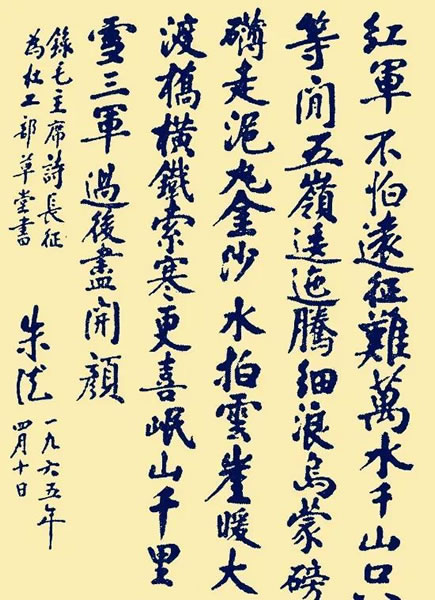 紅軍不怕遠征難萬水千山只
等閒五嶺逶迤騰細浪烏蒙磅
礴走泥丸金沙水拍雲崖暖大
渡橋橫鐵索寒更喜岷山千里
雪三軍過後盡開顏
錄毛主席詩長征
為杜工部草堂書
朱德
一九六五年
四月十日